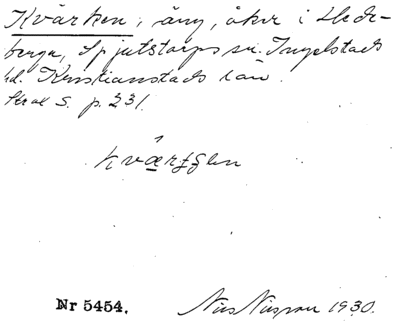 Kvärken, äng, åker i Hede-
berga, Spjutstorps sn. Ingelstads
hd. Kristianstads län.
Skol S. p. 231.
Nr 5454.
Nils Nilsson 1930.